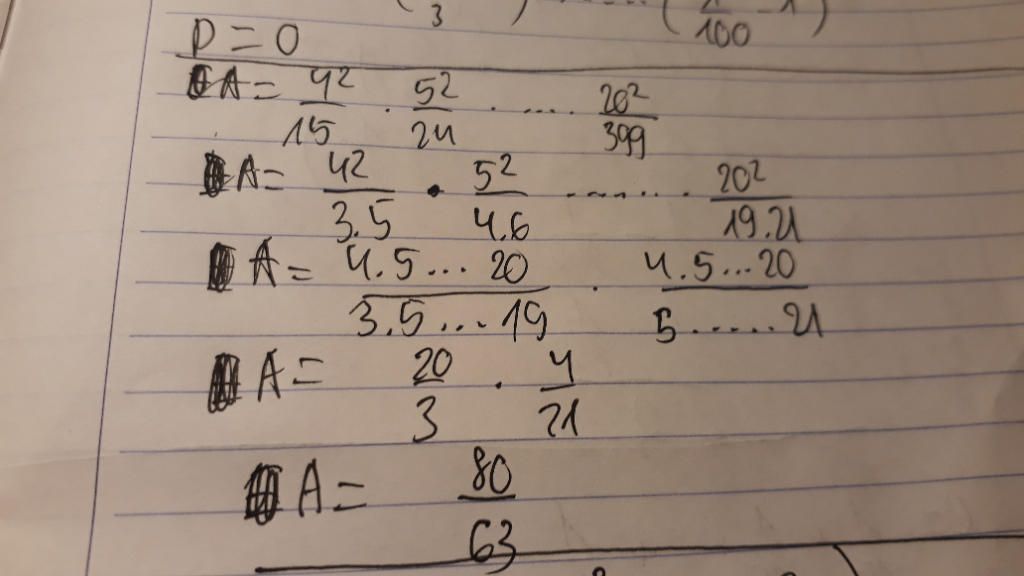 3 100 - 1 )
D = 0
A = 4²/15 . 5²/24 . .... 20²/399
A = 4²/3.5 . 5²/4.6 ....... 20²/19.21
A = 4.5...20/3.5...19 . 4.5...20/5......21
A = 20/3 . 4/21
A = 80/63